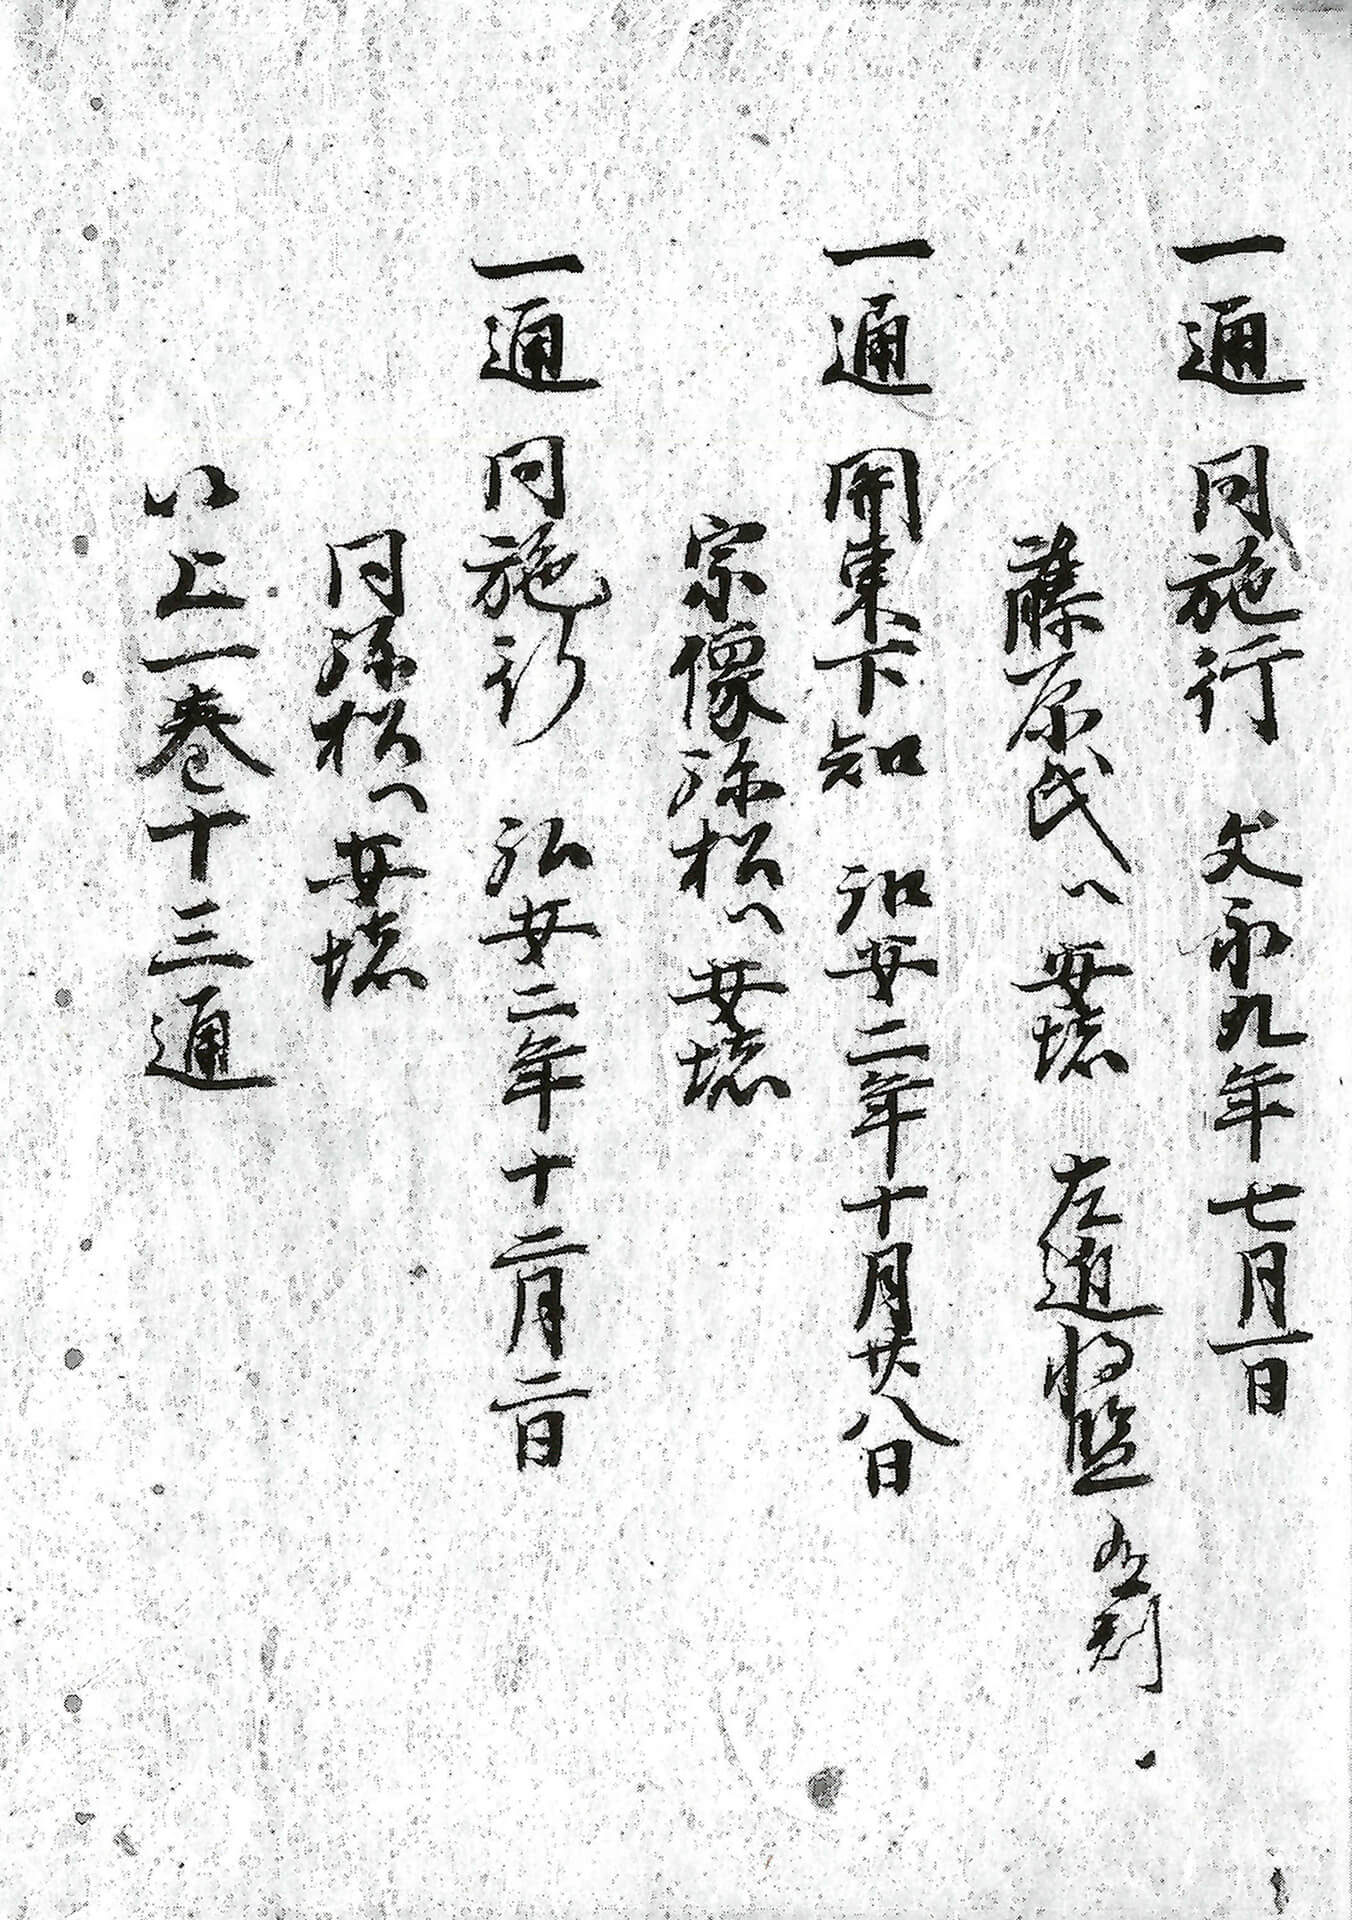 一通 同施行 文永九年七月一日
藤原氏ヘ安堵 左近将監 在判
一通 関東下知 弘安二年十月廿八日
宗像弥松ヘ安堵
一通 同施行 弘安二年十二月二日
同弥松ヘ安堵
以上一巻十三通